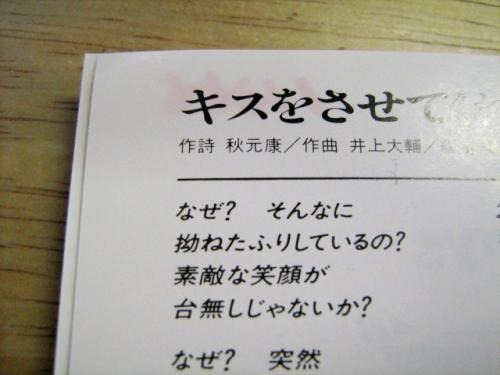 キスをさせて
作詩 秋元康／作曲 井上大輔／
なぜ? そんなに
拗ねたふりしているの?
素敵な笑顔が
台無しじゃないか?
なぜ? 突然